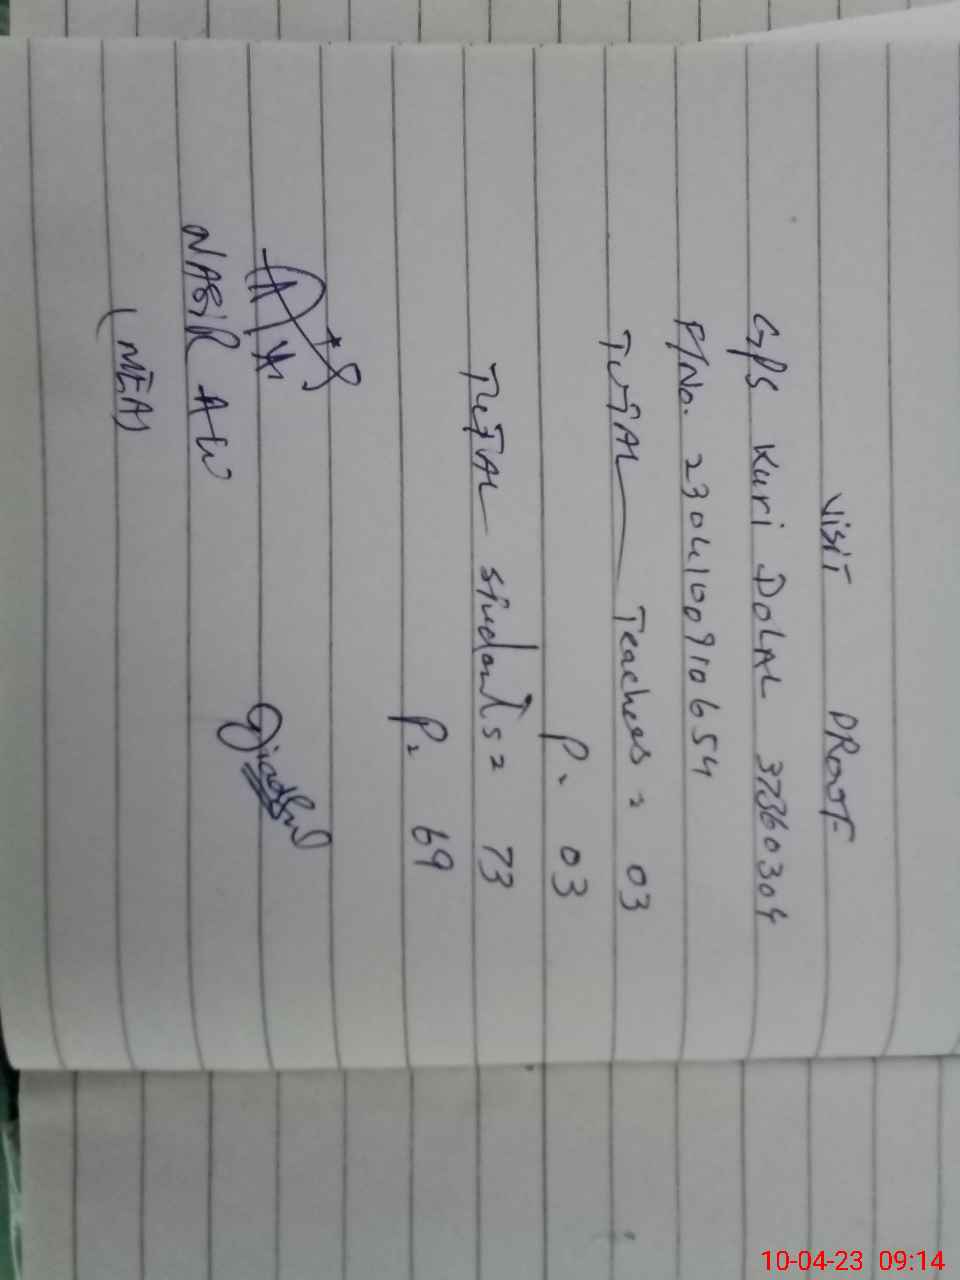 Visit PROOF
GPS Kuri DOLAL 37360304
P/No. 2304100910654
TOTAL Teachers = 03
P. 03
TOTAL Students = 73
P. 69
NASIR ALI
(MEA)
10-04-23 09:14